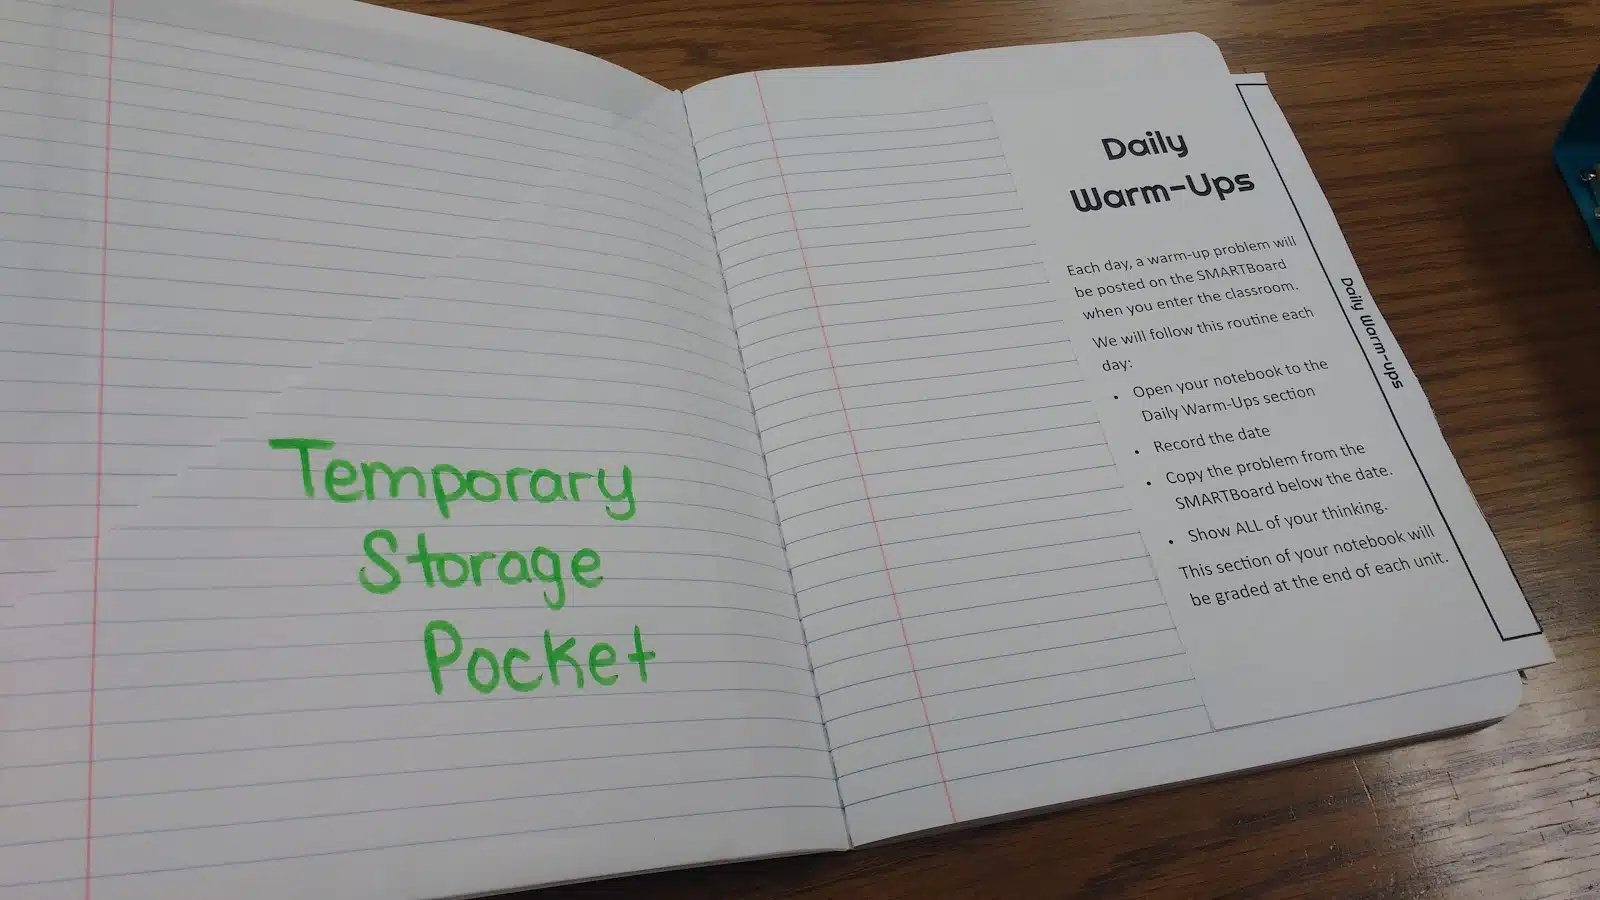 Temporary
Storage
Pocket
Daily
Warm-Ups
Each day, a warm-up problem will
be posted on the SMARTBoard
when you enter the classroom.
We will follow this routine each
day:
• Open your notebook to the
Daily Warm-Ups section
• Record the date
• Copy the problem from the
SMARTBoard below the date.
• Show ALL of your thinking.
This section of your notebook will
be graded at the end of each unit.
Daily Warm-ups